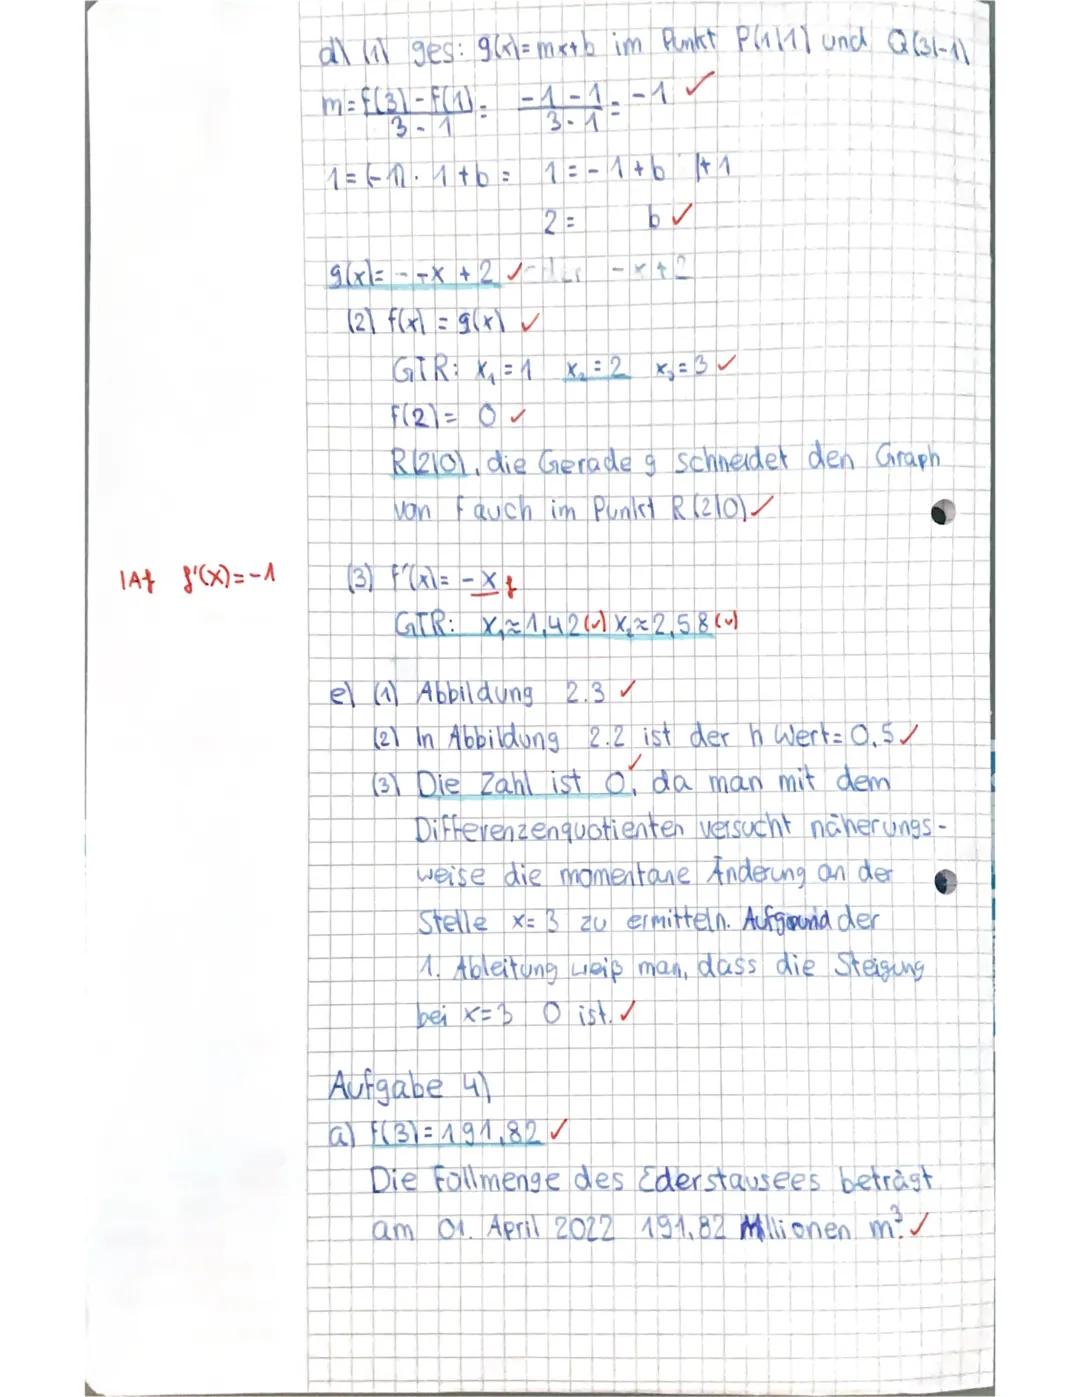 d) (1) ges: g(x)=mx+b im Punkt P(1|1) und Q(3|-1)
m= f(3)-f(1) / 3-1 = -1-1 / 3-1 = -1 ✓
1=(-1)·1+b = 1=-1+b |+1
2= b ✓
g(x)= --x+2 ✓ -x+2
(2) f(x) = g(x) ✓
GTR: x₁=1 x₂=2 x₃=3 ✓
f(2)= 0 ✓
R(2|0), die Gerade g schneidet den Graph
von f auch im Punkt R(2|0) ✓
IAf f'(x)=-1 (3) f'(x)= -x f
GTR: x₁≈1,42 (✓) x₂≈2,58 (✓)
e) (1) Abbildung 2.3 ✓
(2) In Abbildung 2.2 ist der h Wert=0,5 ✓
(3) Die Zahl ist 0 ✓, da man mit dem
Differenzenquotienten versucht näherungs-
weise die momentane Änderung an der
Stelle x=3 zu ermitteln. Aufgrund der
1. Ableitung weiß man, dass die Steigung
bei x=3 0 ist. ✓
Aufgabe 4)
a) f(3)=191,82 ✓
Die Füllmenge des Ederstausees beträgt
am 01. April 2022 191,82 Millionen m³. ✓